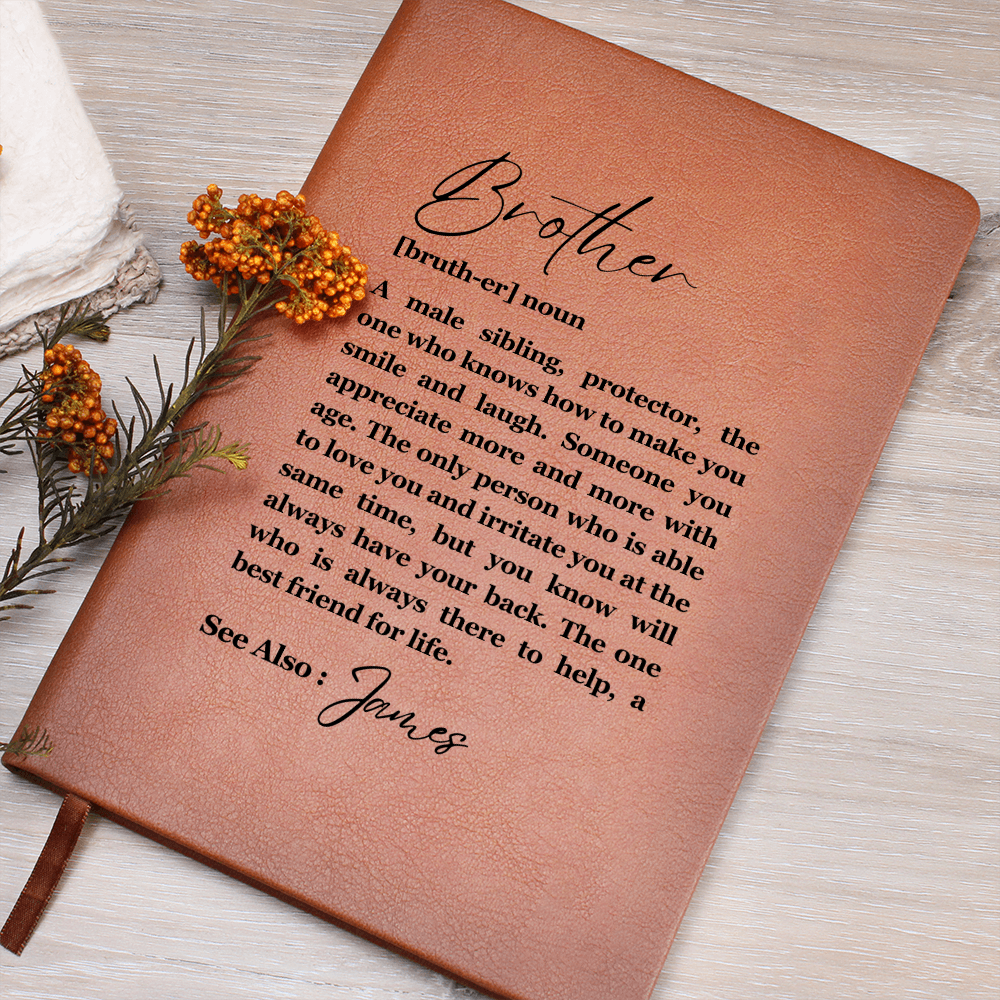 Brother
[bruth-er] noun
A male sibling, protector, the
one who knows how to make you
smile and laugh. Someone you
appreciate more and more with
age. The only person who is able
to love you and irritate you at the
same time, but you know will
always have your back. The one
who is always there to help, a
best friend for life.
See Also : James